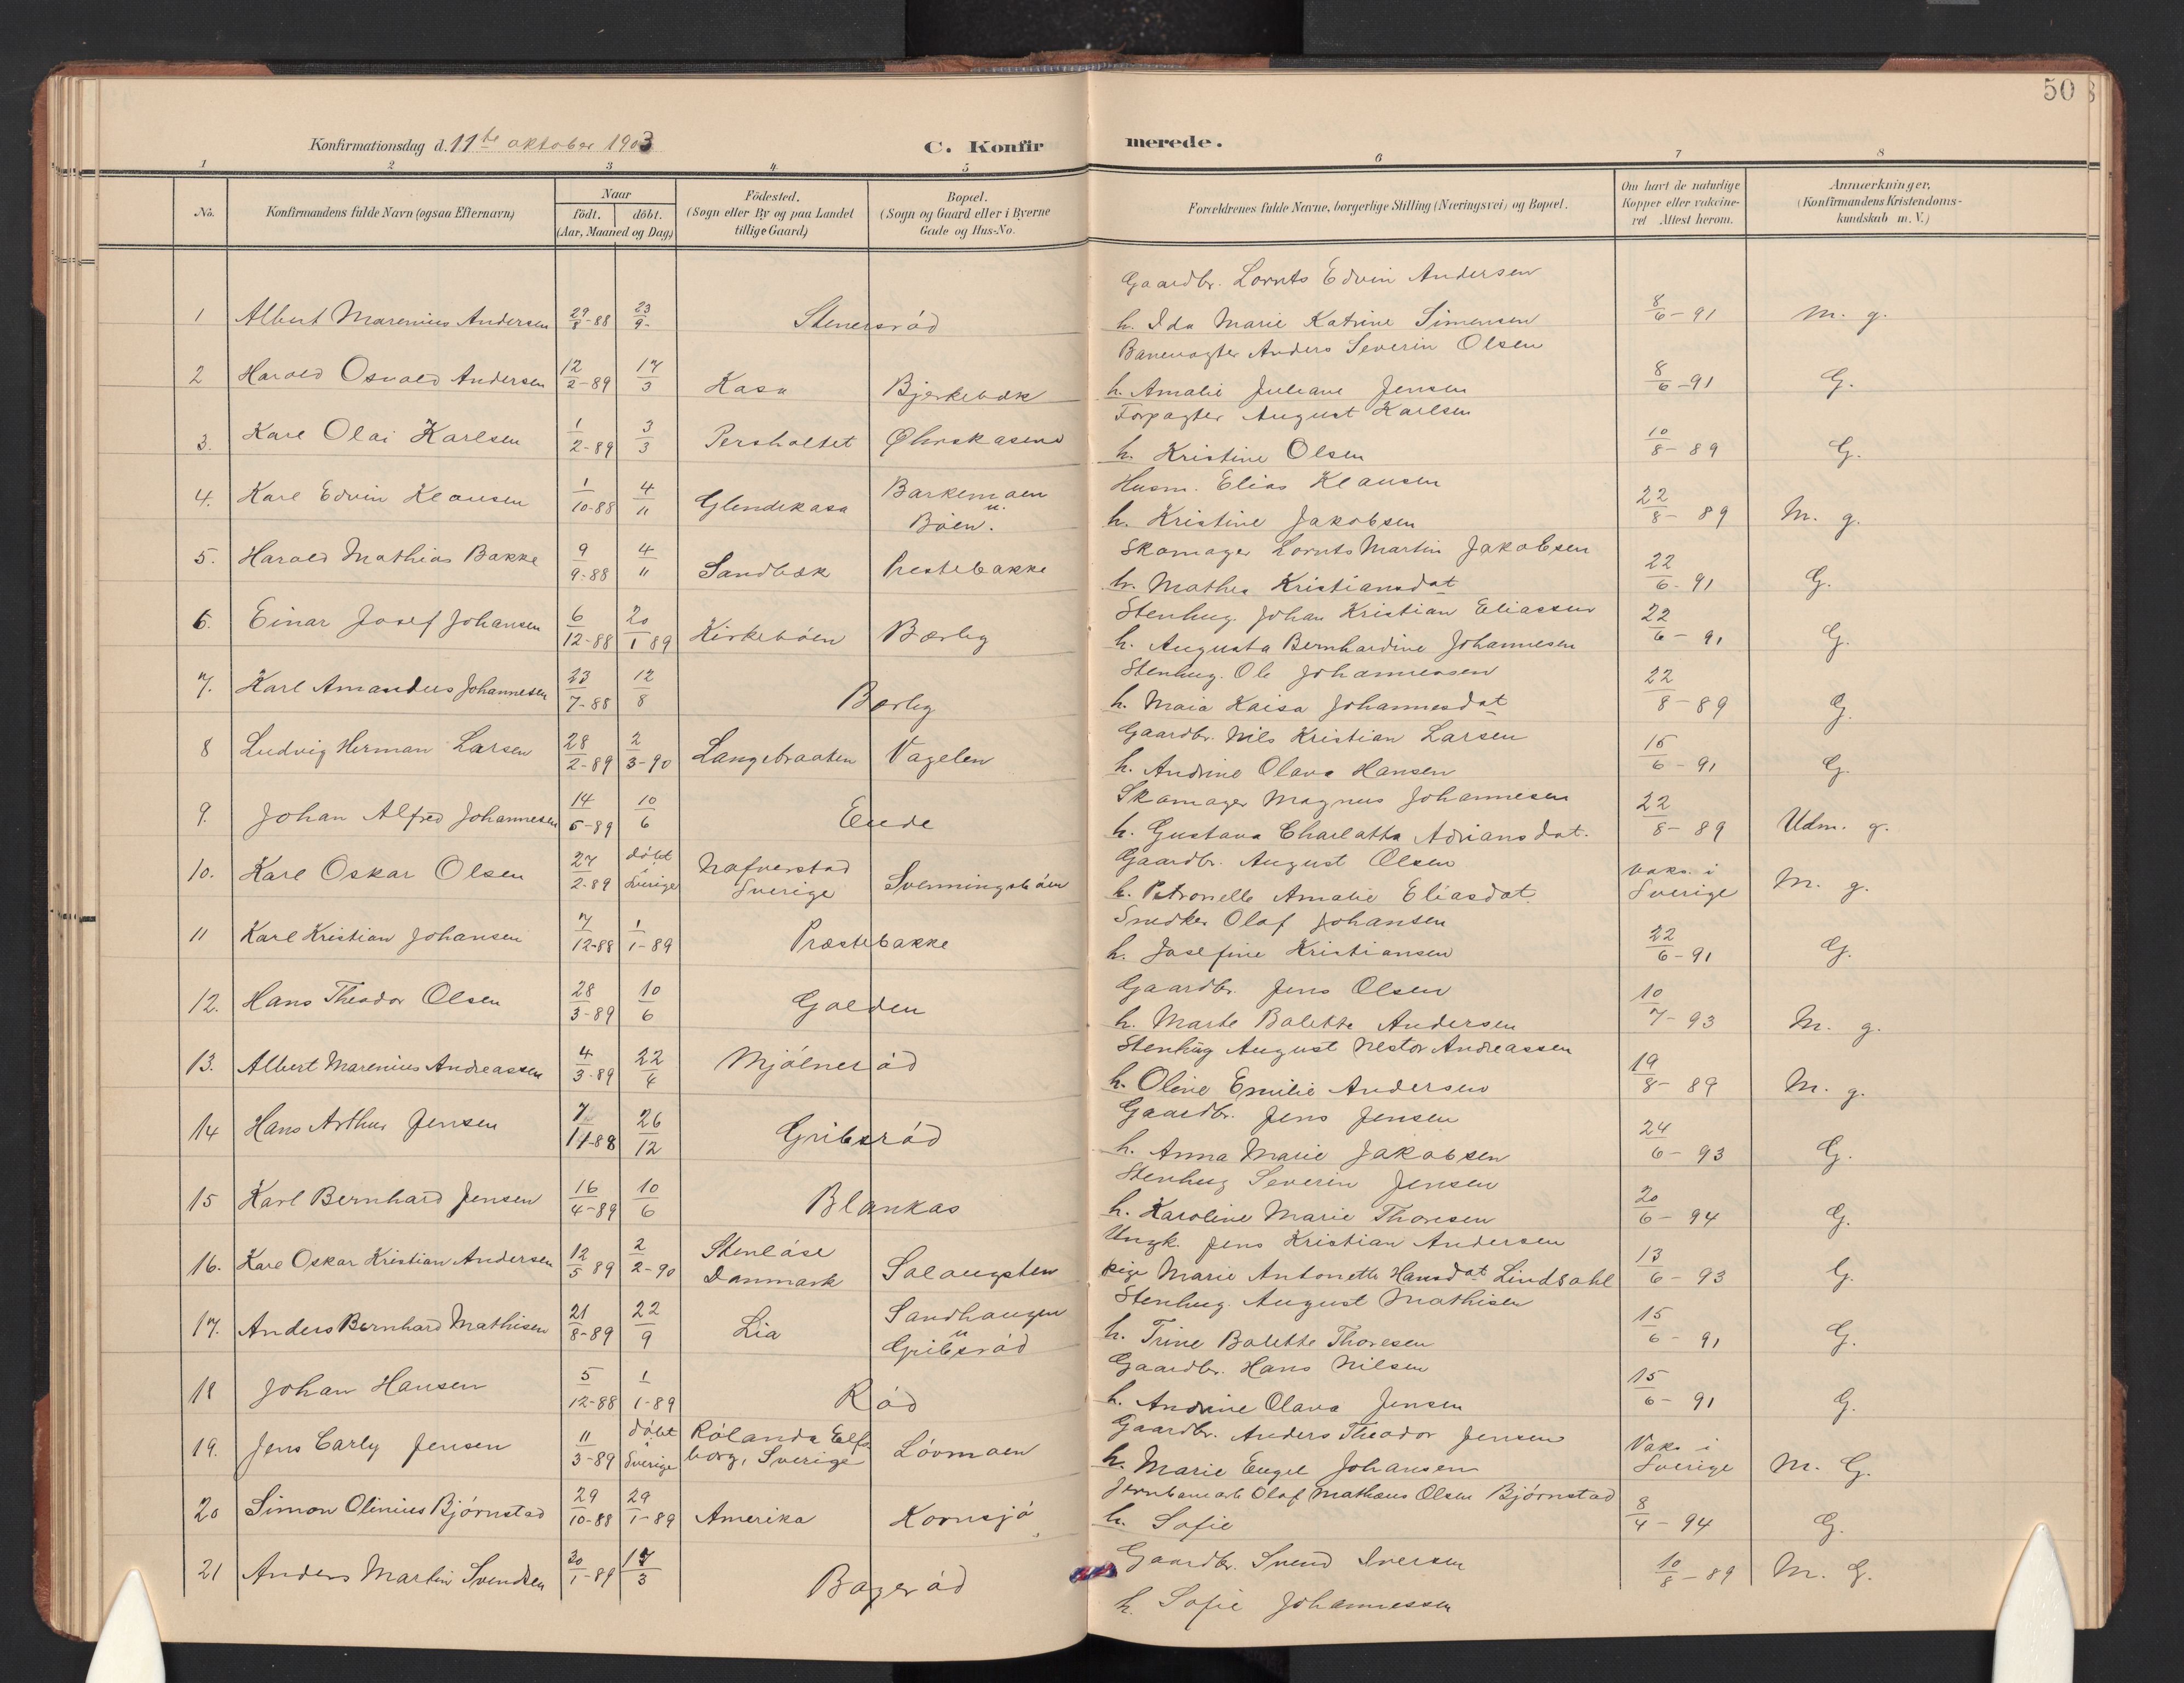 50
Konfirmationsdag d. 11te oktober 1903
C. Konfirmerede.
1 2 3 4 5 6 7 8
No.
Konfirmandens fulde Navn (ogsaa Efternavn)
Naar
födt. döbt.
(Aar, Maaned og Dag)
Födested.
(Sogn eller By og paa Landet
tillige Gaard)
Bopæl.
(Sogn og Gaard eller i Byerne
Gade og Hus-No.
Forældrenes fulde Navne, borgerlige Stilling (Næringsvei) og Bopæl.
Om havt de naturlige
Kopper eller vakvine-
ret Attest herom.
Anmærkninger,
(Konfirmandens Kristendoms-
kundskab m. V.)
Gaardbr. Lornts Edvin Andersen
1 Albert Marenius Andersen 29/8-88 23/9- Stenersröd h. Ida Marie Katrine Simensen 8/6-91 M. g.
Banevogter Anders Severin Olsen
2 Harald Osvald Andersen 12/2-89 17/3 Kasa Bjerkebæk h. Amalie Juliane Jensen 8/6-91 G.
Forpagter August Karlsen
3. Karl Olai Karlsen 1/2-89 3/3 Persholtet h. Kristine Olsen 10/8-89 G.
Husm. Elias Klausen
4. Karl Edvin Klausen 1/10-88 4/11 Glendekasa Barkemoen u. Böen. h. Kristine Jakobsen 22/8-89 M. g.
Skomager Lornts Martin Jakobsen
5. Harald Mathias Bakke 9/9-88 4/11 Sandbæk Prestebakke h. Mathea Kristiansdat 22/6-91 G.
Stenhug. Johan Kristian Eliassen
6. Einar Josef Johansen 6/12-88 20/1 89 Kirkeböen Bærby h. Augusta Bernhardine Johannesen 22/6-91 G.
Stenhug. Ole Johannessen
7. Karl Amandus Johannesen 23/7-88 12/8 Bærby h. Maia Kaisa Johannesdat 22/8-89 G.
Gaardbr. Nils Kristian Larsen
8 Ludvig Herman Larsen 28/2-89 2/3-90 Langebraaten Vagelen h. Andrine Olava Hansen 15/6-91 G.
Skomager Magnus Johannesen
9. Johan Alfred Johannesen 14/5-89 10/6 Ende h. Gustava Charlatta Adriansdat. 22/8-89 Udm. g.
Gaardbr. August Olsen
10. Karl Oskar Olsen 27/2-89 döbt i Sverige Nafverstad Sverige Svenningsböen h. Petronelle Amalie Eliasdat. Vaks. i Sverige M. g.
Snedker Olaf Johansen
11 Karl Kristian Johansen 7/12-88 1/1-89 Præstebakke h. Josefine Kristiansen 22/6-91 G.
Gaardbr. Jens Olsen
12. Hans Theodor Olsen 28/3-89 10/6 Golden h. Marte Bolette Andersen 10/7-93 M. g.
Stenhug August Nestor Andreassen
13. Albert Marenius Andreassen 4/3-89 22/4 Mjölneröd h. Oline Emilie Andersen 19/8-89 M. g.
Gaardbr. Jens Jensen
14 Hans Arthur Jensen 7/11-88 26/12 Gribsröd h. Anna Marie Jakobsen 24/6-93 G.
Stenhug Severin Jensen
15 Karl Bernhard Jensen 16/4-89 10/6 Blankas h. Karoline Marie Thoresen 20/6-94 G.
Ungk. Jens Kristian Andersen
16. Karl Oskar Kristian Andersen 12/5 89 2/2-90 Stenløse Danmark Salaugsten pige Marie Antonette Hansdat Lindsahl 13/6-93 G.
Stenhug. August Mathisen
17. Anders Bernhard Mathisen 21/8-89 22/9 Lia Sandhaugen u Gribsröd h. Trine Bolette Thoresen 15/6-91 G.
Gaardbr. Hans Nilsen
18 Johan Hansen 5/12-88 1/1-89 Röd h. Andrine Olava Jensen 15/6-91 G.
Gaardbr. Anders Theodor Jensen
19. Jens Carly Jensen 11/3-89 döbt i Sverige Rölanda Elfsborg, Sverige Lövmoen h. Marie Engel Johansen Vaks i Sverige M. G.
Jernbanearb Olaf Mathæus Olsen Björnstad
20 Simon Olinius Björnstad 29/10-88 29/1-89 Amerika Kornsjö h. Sofie 8/4-94 G.
Gaardbr. Svend Iversen
21 Anders Martin Svendsen 30/1-89 17/3 Bageröd h. Sofie Johannessen 10/8-89 M. G.